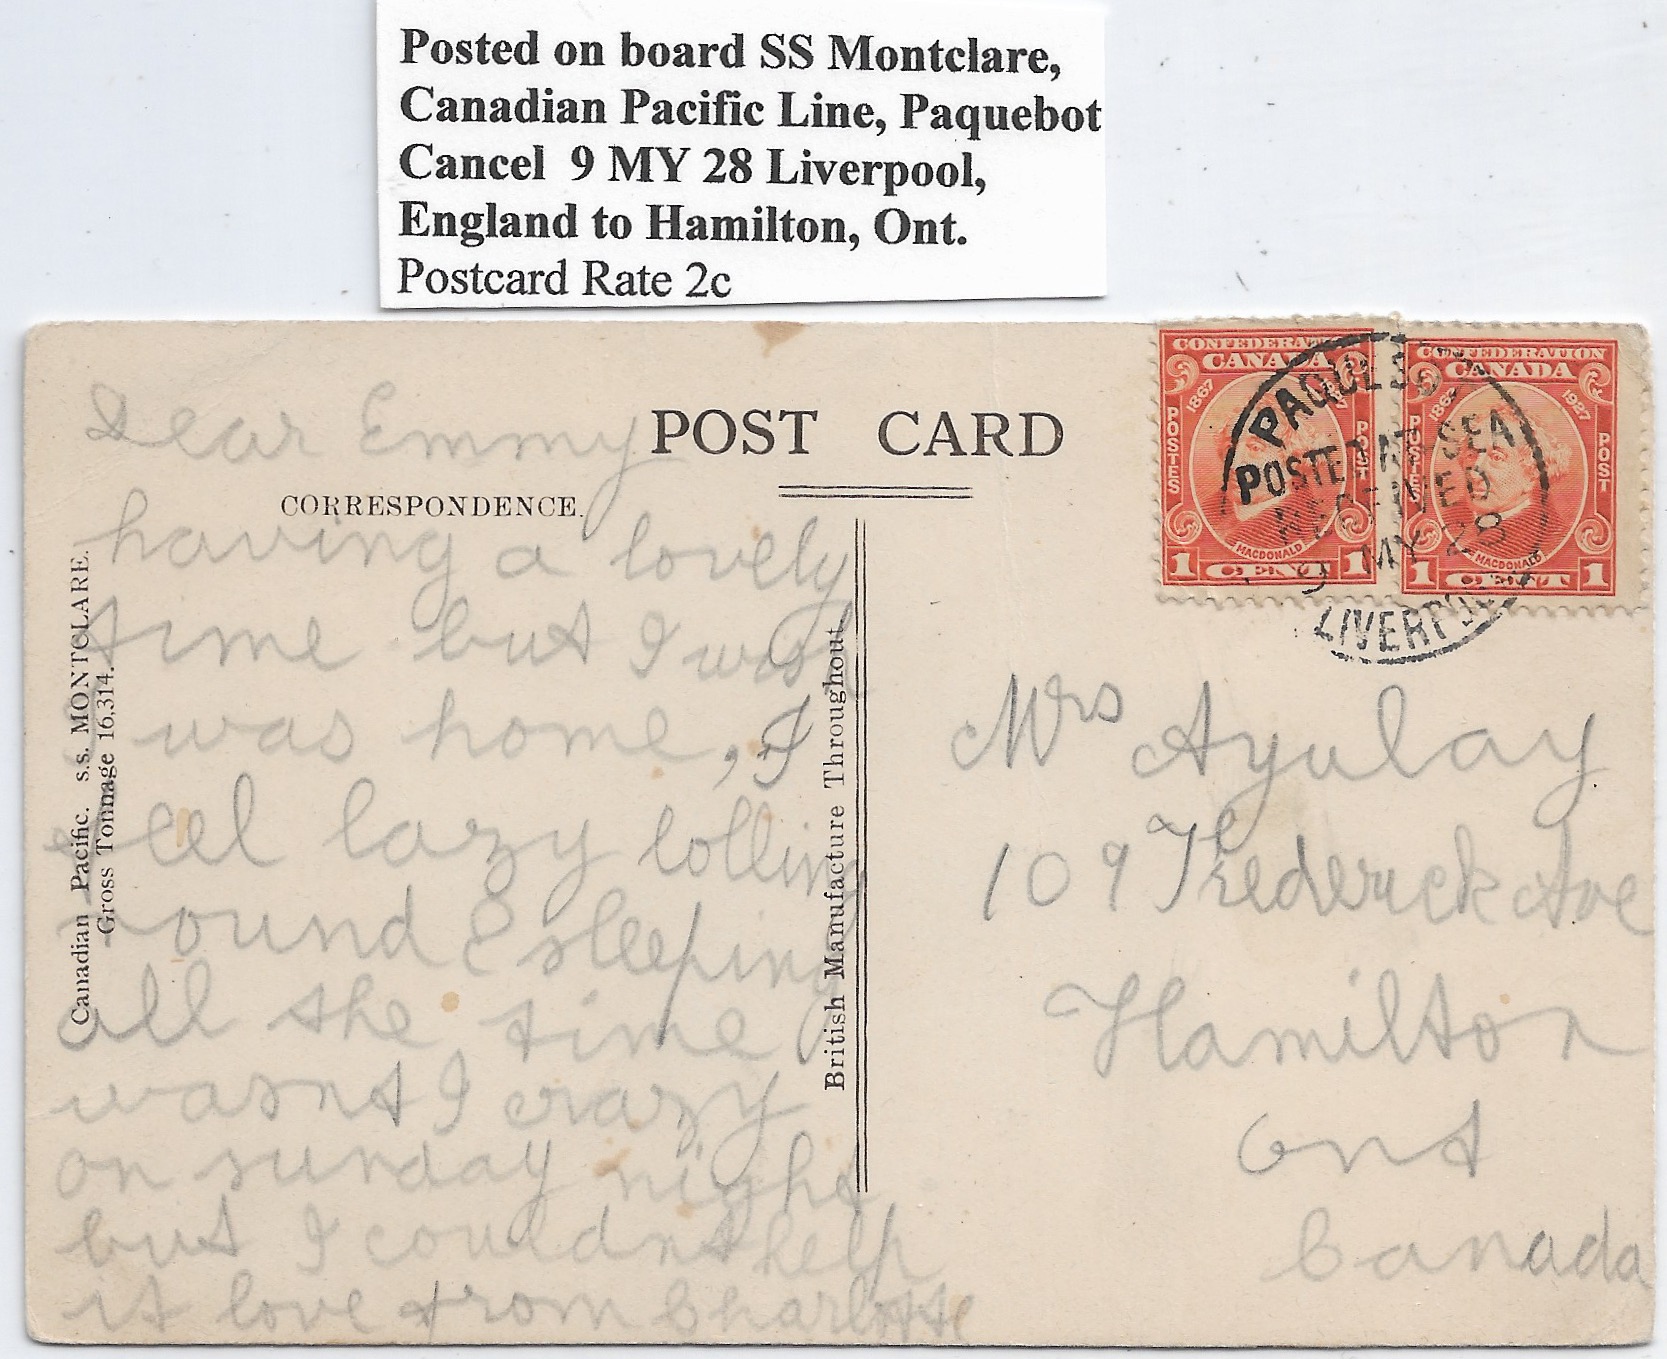 Posted on board SS Montclare,
Canadian Pacific Line, Paquebot
Cancel 9 MY 28 Liverpool,
England to Hamilton, Ont.
Postcard Rate 2c
POST CARD
CORRESPONDENCE.
Dear Emmy
having a lovely
time but I wish
I was home, I
feel lazy lolling
round & sleeping
all the time
wasnt I crazy
on sunday night
but I couldnt help
it love from Charlotte
Canadian Pacific. s.s. MONTCLARE.
Gross Tonnage 16,314.
British Manufacture Throughout
CONFEDERATION
CANADA
1867
POSTES
POST
MACDONALD
1 CENT 1
CONFEDERATION
CANADA
1867 1927
POSTES
POST
MACDONALD
1 CENT 1
PAQUEBOT
POSTED AT SEA
RECEIVED
9 MY 28
LIVERPOOL
Mrs Ayulay
109 Frederick Ave
Hamilton
Ont
Canada